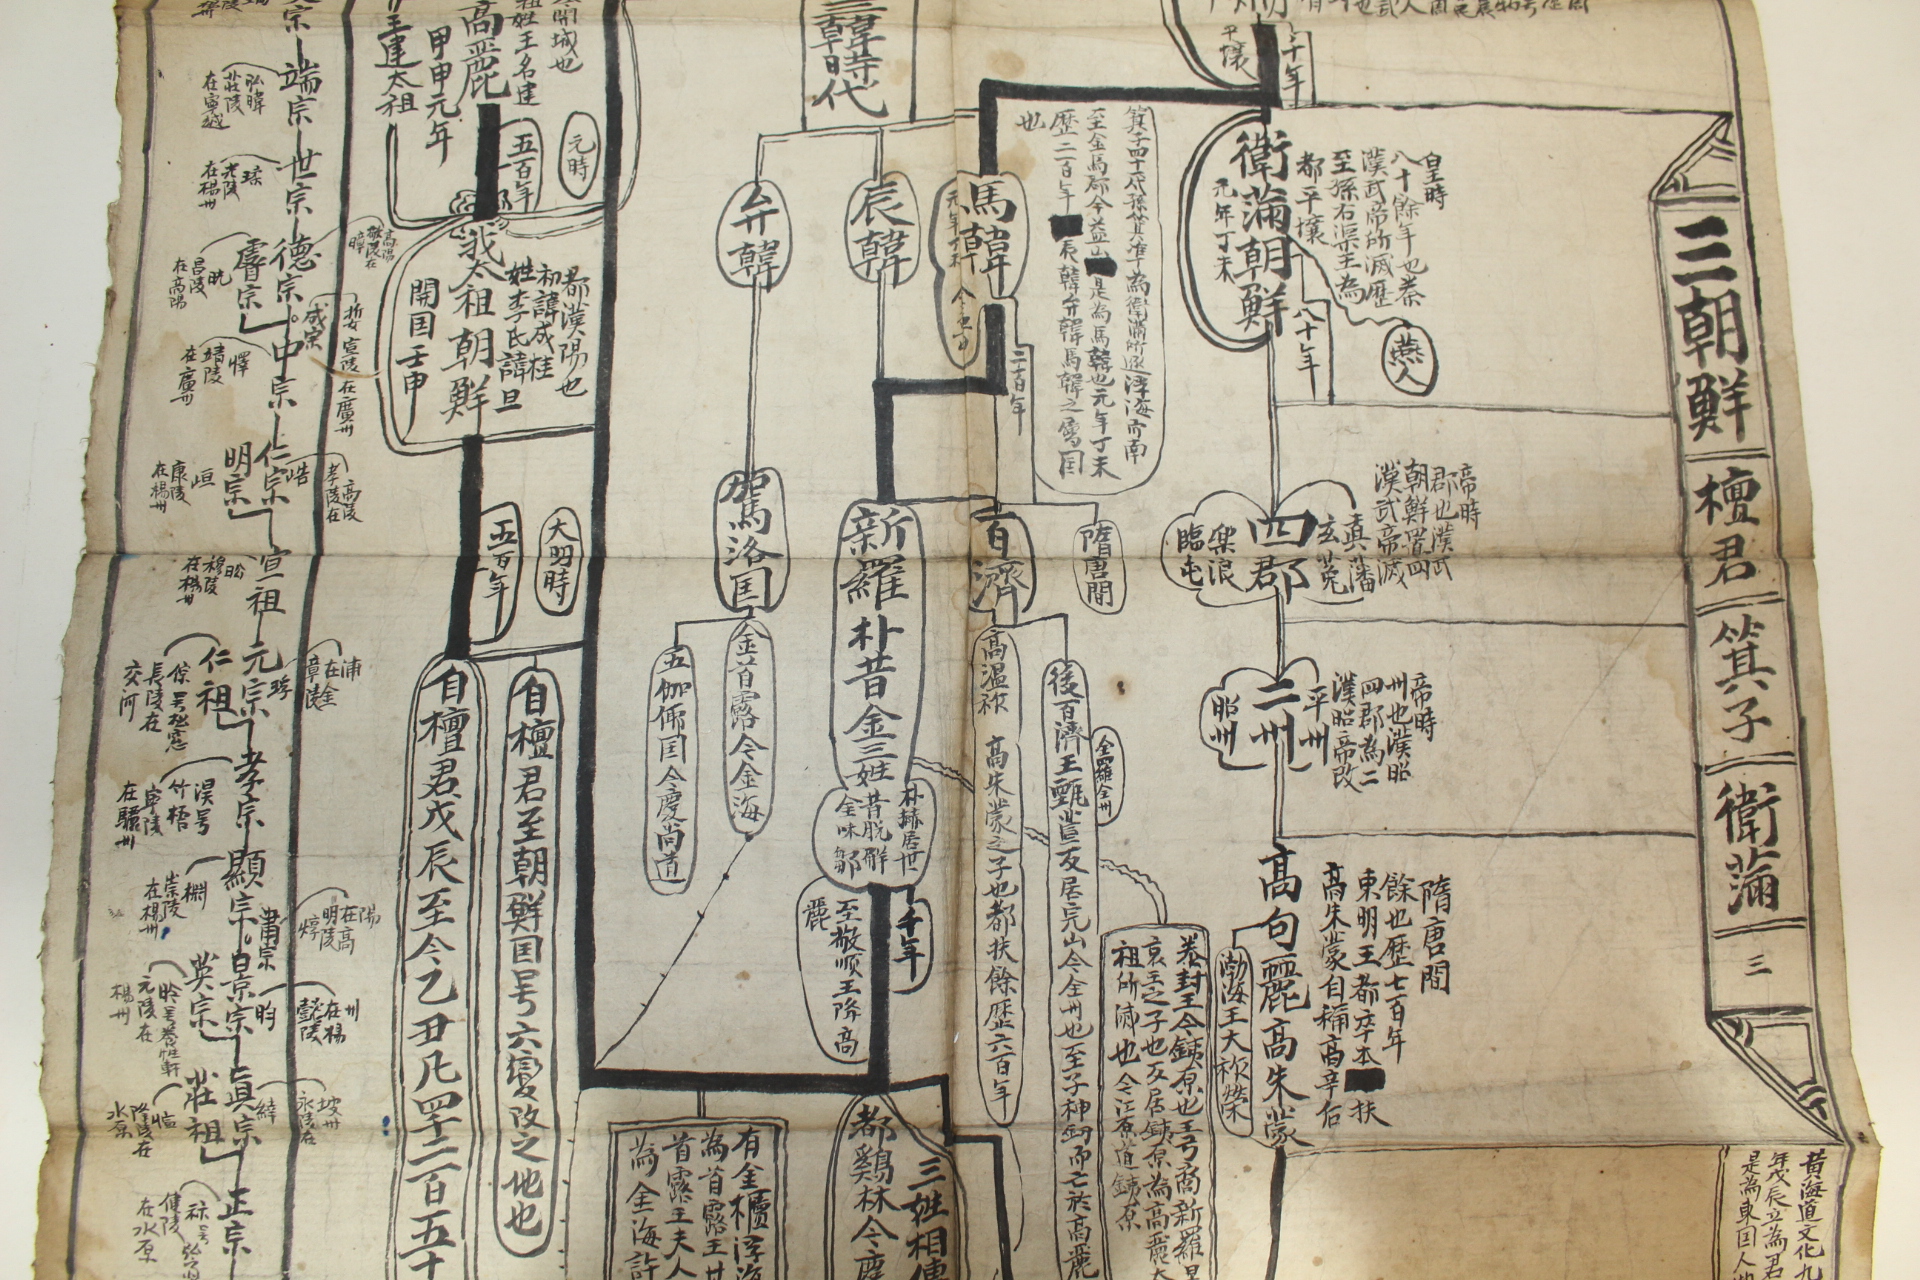 三朝鮮
檀君
箕子
衛滿
三
黃海道文化九
年戊辰立為君
是為東国人
十年
平壤
衛滿朝鮮
元年丁未
都平壤
至孫右渠王為
漢武帝所滅歷
八十餘年也秦
皇時
八十年
燕人
四郡
真藩
玄菟
樂浪
臨屯
漢武帝滅
朝鮮置四
郡也漢武
帝時
二州
平州
昭州
漢昭帝改
四郡為二
州也漢昭
帝時
高句麗高朱蒙
高朱蒙自稱高辛后
東明王都卒本扶
餘也歷七百年
隋唐間
渤海王大祚榮
箕子四十一代孫箕準為衛滿所逐浮海而南
至金馬郡今益山是為馬韓也元年丁未
歷二百年
辰韓弁韓馬韓之屬国
也
三韓時代
馬韓
辰韓
弁韓
二百年
隋唐間
百濟
高溫祚
高朱蒙之子也都扶餘歷六百年
後百濟王甄萱反居完山今全州也至子神劍而亡於高麗
全羅全州
泰封王今鐵原也王弓裔新羅
哀王之子也反居鐵原為高麗太
祖所滅也今江原道鐵原
新羅
朴昔金三姓
朴赫居世
昔脫解
金味鄒
千年
至敬順王降高
麗
都鷄林今慶
三姓相傳
駕洛国
金首露今金海
五伽倻国今慶尚道
有金櫃浮海
為首露王
首露王夫人
為金海許
高麗
祖姓王名建
開城也
甲申元年
王建太祖
五百年
元時
我太祖朝鮮
姓李氏諱旦
初諱成桂
都漢陽也
開国壬申
五百年
大明時
自檀君至朝鮮国号六變改之地也
自檀君戊辰至今乙丑凡四千二百五十
端宗
弘暐
莊陵
在寧越
世宗
瑈
光陵
在楊州
德宗
暲
敬陵在
高陽
睿宗
晄
昌陵
在高陽
成宗
娎
宣陵
在廣州
中宗
懌
靖陵
在廣州
仁宗
峼
孝陵在
高陵
明宗
峘
康陵
在楊州
宣祖
昖
穆陵
在楊州
元宗
琈
章陵
在金
浦
仁祖
倧号松窓
長陵在
交河
孝宗
淏号
竹梧
寧陵
在驪州
顯宗
棩
崇陵
在楊州
肅宗
焞
明陵
在高
陽
景宗
昀
懿陵
在楊
州
英宗
昑号養性軒
元陵在
楊州
真宗
緈
永陵在
坡州
莊祖
愃
隆陵在
水原
正宗
祘号弘
健陵
在水原